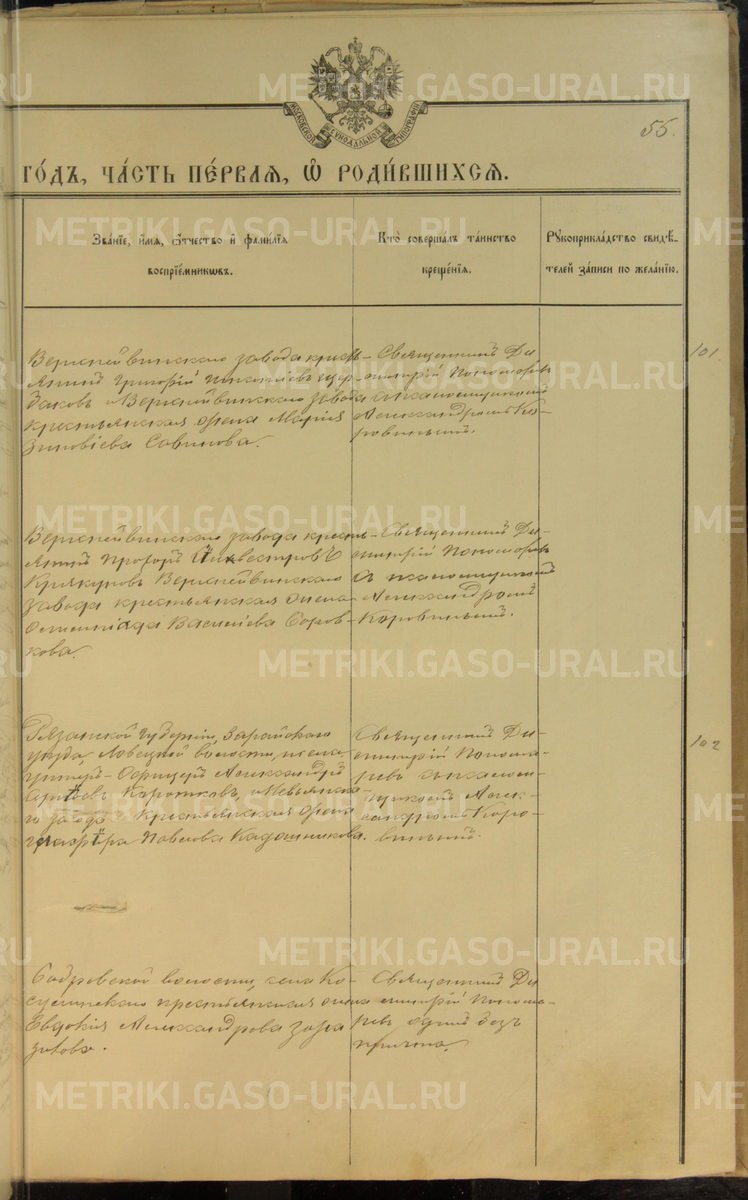 МОСКОВСКОЙ СѴНОДАЛЬНОЙ ТИПОГРАФІИ
55.
ГО́ДЪ, ЧА́СТЬ ПЕ́РВАЯ, Ѽ РОДИ́ВШИХСЯ.
Зва́нїе, и҆́мя, Ѻ҆́тчество и҆ фами́лїя
воспрїе́мникѡвъ.
Кто̀ соверша́лъ та́инство
креще́нїя.
Рꙋкоприкла́дство свидѣ́-
телей за́писи по жела́нїю.
Верхнейвинскаго завода кресть-
янинъ Григорій Игнатіевъ
Верхнейвинскаго завода
крестьянская жена Марія
Зиновіева Савинова.
Священникъ Ди-
митрій Пономаревъ
съ псаломщикомъ
Александромъ Ко-
ровинымъ.
101.
Верхнейвинскаго завода кресть-
янинъ Прохоръ Силвестровъ
Верхнейвинскаго
завода крестьянская жена
Олимпіада Василіева
кова.
Священникъ Ди-
митрій Пономаревъ
съ псаломщикомъ
Александромъ
Коровинымъ.
Рязанской Губерніи, Зарайскаго
уѣзда Ловецкой волости,
унтеръ-Офицеръ Александръ
Сергѣевъ Коротковъ, и Невьянска-
го завода крестьянская жена
Глафѵра Павлова Кадошникова.
Священникъ Ди-
митрій Понома-
ревъ съ псалом-
щикомъ Алек-
сандромъ Коро-
винымъ.
102
волости, села Ко-
сулинскаго крестьянская жена
Евдокія Александрова
Священникъ Ди-
митрій Понома-
ревъ одинъ безъ
причта.
METRIKI.GASO-URAL.RU